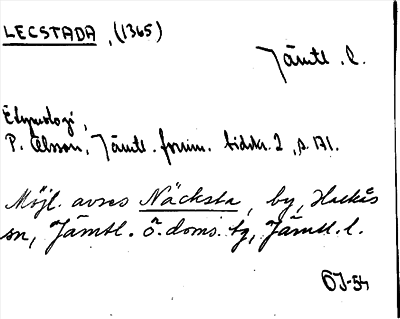 LECSTADA, (1365)
Jämtl. l.
Etymologi,
P. Olsson, Jämtl. fornm. tidskr. 2, s. 171.
Möjl. avses Näcksta, by, Hackås
sn, Jämtl. ö. doms. tg, Jämtl. l.
OJ-54